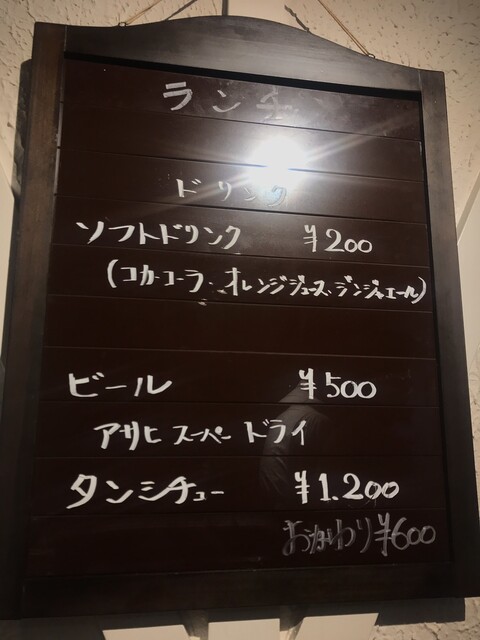 ランチ
ドリンク
ソフトドリンク ¥200
(コカ・コーラ・オレンジジュース・ジンジャエール)
ビール ¥500
アサヒ スーパードライ
タンシチュー ¥1.200
おかわり ¥600